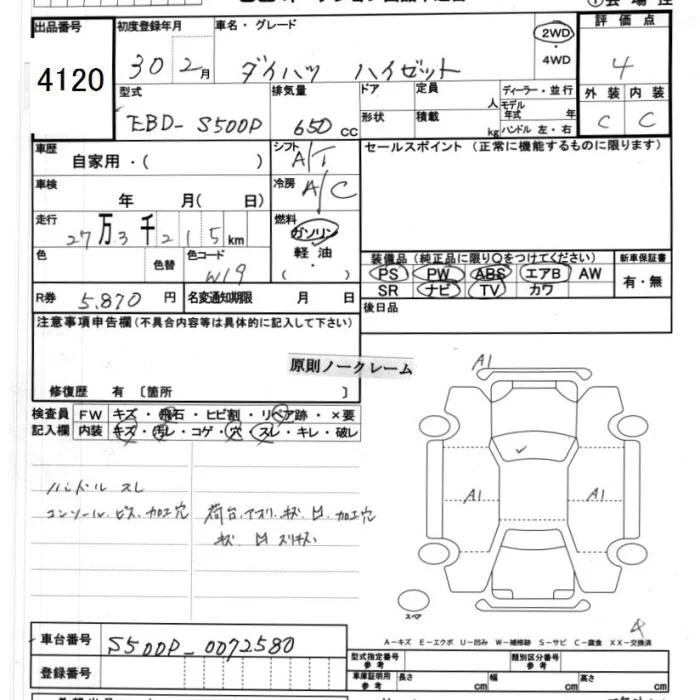 出品番号 初度登録年月 車名・グレード 2WD 評価点
4120 30 2月 ダイハツ ハイゼット 4WD 4
型式 排気量 ドア 定員 人 ディーラー・並行 外装 内装
EBD-S500P 650cc 形状 積載 kg モデル年式 年 ハンドル 左・右 C C
車歴 自家用・( ) シフト A/T セールスポイント (正常に機能するものに限ります)
車検 年 月( 日) 冷房 A/C
走行 27万3千215km 燃料 ガソリン
色 色替 色コード W19 軽油 ( ・ ) 装備品 (純正品に限り○をつけてください) 新車保証書
PS PW ABS エアB AW 有・無
R券 5,870円 名変通知期限 月 日 SR ナビ TV カワ
注意事項申告欄(不具合内容等は具体的に記入して下さい) 後日品
原則ノークレーム
修復歴 有 〔箇所 〕
A1
検査員 FW キズ・飛石・ヒビ割・リペア跡・×要
記入欄 内装 キズ・汚レ・コゲ・穴・スレ・キレ・破レ
ハンドル スレ
コンソール ビス、加工穴 荷台、アオリ、キズ 凹 加工穴
キズ 凹 スリキズ
A1 A1
スペア
4
A-キズ E-エクボ U-凹み W-補修跡 S-サビ C-腐食 XX-交換済
車台番号 S500P-0072580
型式指定番号 参考 類別区分番号 参考
登録番号 車庫証明用 参考 長さ cm 幅 cm 高さ cm